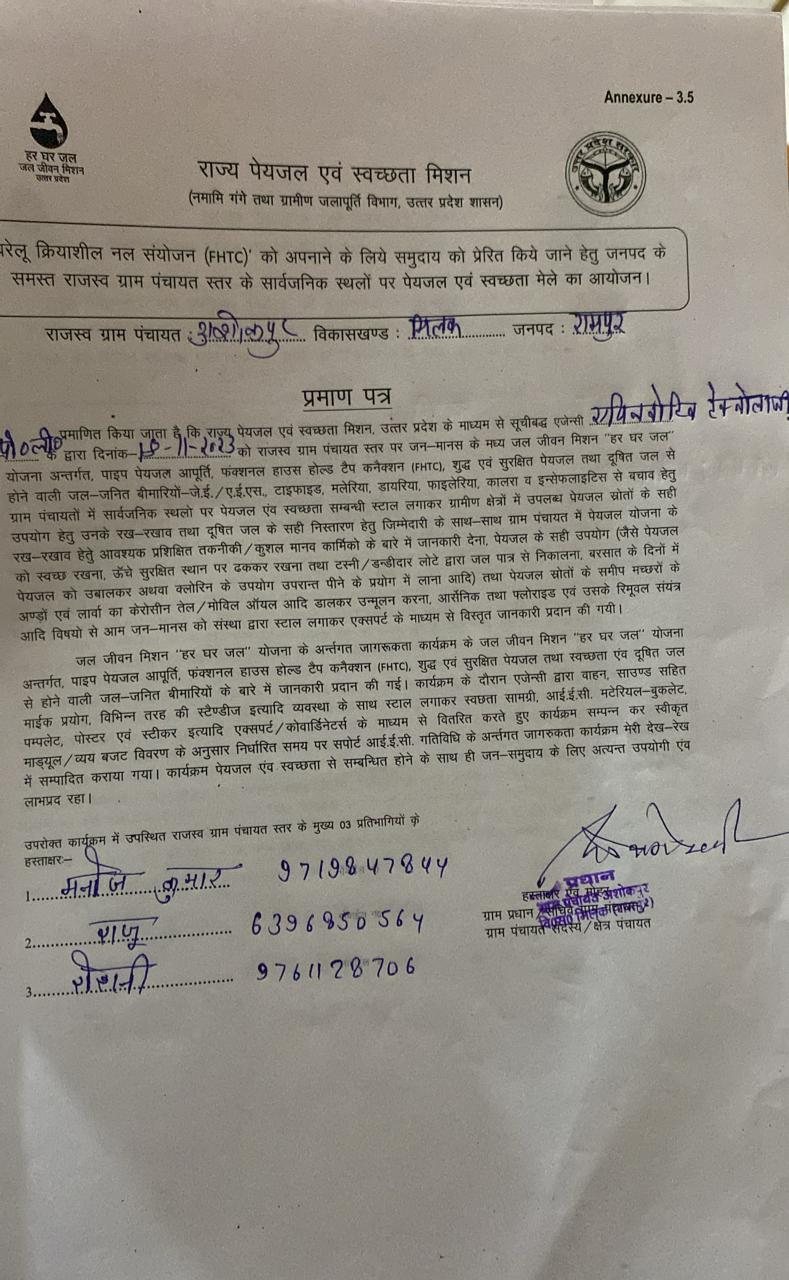 Annexure – 3.5
हर घर जल
जल जीवन मिशन
उत्तर प्रदेश
उत्तर प्रदेश सरकार
राज्य पेयजल एवं स्वच्छता मिशन
(नमामि गंगे तथा ग्रामीण जलापूर्ति विभाग, उत्तर प्रदेश शासन)
रेलू क्रियाशील नल संयोजन (FHTC)' को अपनाने के लिये समुदाय को प्रेरित किये जाने हेतु जनपद के
समस्त राजस्व ग्राम पंचायत स्तर के सार्वजनिक स्थलों पर पेयजल एवं स्वच्छता मेले का आयोजन।
राजस्व ग्राम पंचायत : अशोकपुर विकासखण्ड : मिलक जनपद : रामपुर
प्रमाण पत्र
प्रमाणित किया जाता है कि राज्य पेयजल एवं स्वच्छता मिशन, उत्तर प्रदेश के माध्यम से सूचीबद्ध एजेन्सी टेक्नोलाजी
प्रा०ली० के द्वारा दिनांक-18-11-2023 को राजस्व ग्राम पंचायत स्तर पर जन–मानस के मध्य जल जीवन मिशन "हर घर जल"
योजना अन्तर्गत, पाइप पेयजल आपूर्ति, फंक्शनल हाउस होल्ड टैप कनैक्शन (FHTC), शुद्ध एवं सुरक्षित पेयजल तथा दूषित जल से
होने वाली जल–जनित बीमारियों–जे.ई./ए.ई.एस., टाइफाइड, मलेरिया, डायरिया, फाइलेरिया, कालरा व इन्सेफलाइटिस से बचाव हेतु
ग्राम पंचायतों में सार्वजनिक स्थलो पर पेयजल एंव स्वच्छता सम्बन्धी स्टाल लगाकर ग्रामीण क्षेत्रों में उपलब्ध पेयजल स्रोतों के सही
उपयोग हेतु उनके रख–रखाव तथा दूषित जल के सही निस्तारण हेतु जिम्मेदारी के साथ–साथ ग्राम पंचायत में पेयजल योजना के
रख–रखाव हेतु आवश्यक प्रशिक्षित तकनीकी/कुशल मानव कार्मिको के बारे में जानकारी देना, पेयजल के सही उपयोग (जैसे पेयजल
को स्वच्छ रखना, ऊँचे सुरक्षित स्थान पर ढककर रखना तथा टस्नी/डन्डीदार लोटे द्वारा जल पात्र से निकालना, बरसात के दिनों में
पेयजल को उबालकर अथवा क्लोरिन के उपयोग उपरान्त पीने के प्रयोग में लाना आदि) तथा पेयजल स्रोतों के समीप मच्छरों के
अण्डों एवं लार्वा का केरोसीन तेल/मोविल ऑयल आदि डालकर उन्मूलन करना, आर्सेनिक तथा फ्लोराइड एवं उसके रिमूवल संयंत्र
आदि विषयो से आम जन–मानस को संस्था द्वारा स्टाल लगाकर एक्सपर्ट के माध्यम से विस्तृत जानकारी प्रदान की गयी।
जल जीवन मिशन "हर घर जल" योजना के अर्न्तगत जागरूकता कार्यक्रम के जल जीवन मिशन "हर घर जल" योजना
अन्तर्गत, पाइप पेयजल आपूर्ति, फंक्शनल हाउस होल्ड टैप कनैक्शन (FHTC), शुद्ध एवं सुरक्षित पेयजल तथा स्वच्छता एंव दूषित जल
से होने वाली जल–जनित बीमारियों के बारे में जानकारी प्रदान की गई। कार्यक्रम के दौरान एजेन्सी द्वारा वाहन, साउण्ड सहित
माईक प्रयोग, विभिन्न तरह की स्टैण्डीज इत्यादि व्यवस्था के साथ स्टाल लगाकर स्वछता सामग्री, आई.ई.सी. मटेरियल–बुकलेट,
पम्पलेट, पोस्टर एवं स्टीकर इत्यादि एक्सपर्ट/कोवार्डिनेटर्स के माध्यम से वितरित करते हुए कार्यक्रम सम्पन्न कर स्वीकृत
माड्यूल/व्यय बजट विवरण के अनुसार निर्धारित समय पर सपोर्ट आई.ई.सी. गतिविधि के अर्न्तगत जागरुकता कार्यक्रम मेरी देख–रेख
में सम्पादित कराया गया। कार्यक्रम पेयजल एंव स्वच्छता से सम्बन्धित होने के साथ ही जन–समुदाय के लिए अत्यन्त उपयोगी एंव
लाभप्रद रहा।
उपरोक्त कार्यक्रम में उपस्थित राजस्व ग्राम पंचायत स्तर के मुख्य 03 प्रतिभागियों के
हस्ताक्षरः–
1. मनोज कुमार 9719847844
2. राजू 6396850564
3. रोशनी 9761128706
प्रधान
हस्ताक्षर एवं मोहर
ग्राम पंचायत अशोकपुर
ग्राम प्रधान/सचिव ग्राम पंचायत
वि०ख० मिलक (रामपुर)
ग्राम पंचायत सदस्य/क्षेत्र पंचायत